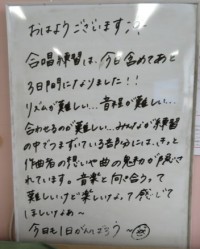 おはようございます：)
合唱練習は、今日含めてあと
3日間になりました！！
リズムが難しい…音程が難しい…
合わせるのが難しい…みんなが練習
の中でつまずいている部分には、きっと
作曲者の想いや曲の魅力が隠さ
れています。音楽と向き合うって
難しいけど楽しいなぁって感じて
ほしいなぁ〜
今日も1日がんばろう〜